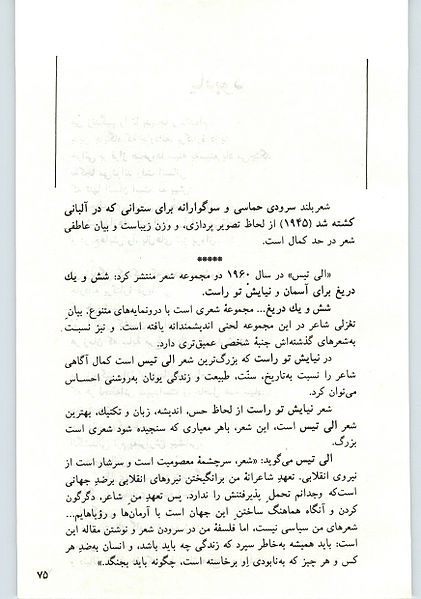 شعر بلند سرودی حماسی و سوگوارانه برای ستوانی که در آلبانی
کشته شد (۱۹۴۵) از لحاظ تصویر پردازی، و وزن زیباست و بیان عاطفی
شعر در حد کمال است.
*****
«الی تیس» در سال ۱۹۶۰ دو مجموعه شعر منتشر کرد: شش و یك
دریغ برای آسمان و نیایش تو راست.
شش و یك دریغ... مجموعهٔ شعری است با درونمایه‌های متنوع. بیان
تغزلی شاعر در این مجموعه لحنی اندیشمندانه یافته است. و نیز نسبت
به‌شعرهای گذشته‌اش جنبهٔ شخصی عمیق‌تری دارد.
در نیایش تو راست که بزرگ‌ترین شعر الی تیس است کمال آگاهی
شاعر را نسبت به‌تاریخ، سنّت، طبیعت و زندگی یونان به‌روشنی احساس
می‌توان کرد.
شعر نیایش تو راست از لحاظ حس، اندیشه، زبان و تکنیك، بهترین
شعر الی تیس است، این شعر، باهر معیاری که سنجیده شود شعری است
بزرگ.
الی تیس می‌گوید: «شعر، سرچشمهٔ معصومیت است و سرشار است از
نیروی انقلابی. تعهدِ شاعرانهٔ من برانگیختن نیروهای انقلابی برضدِ جهانی
است‌که وجدانم تحملِ پذیرفتنش را ندارد. پس تعهدِ منِ شاعر، دگرگون
کردن و آنگاه هماهنگ ساختنِ این جهان است با آرمان‌ها و رؤیاهایم...
شعرهای من سیاسی نیست، اما فلسفهٔ من در سرودن شعر و نوشتن مقاله این
است: باید همیشه به‌خاطر سپرد که زندگی چه باید باشد، و انسان به‌ضدِ هر
کس و هر چیز که به‌نابودی او برخاسته است، چگونه باید بجنگد.»
۷۵